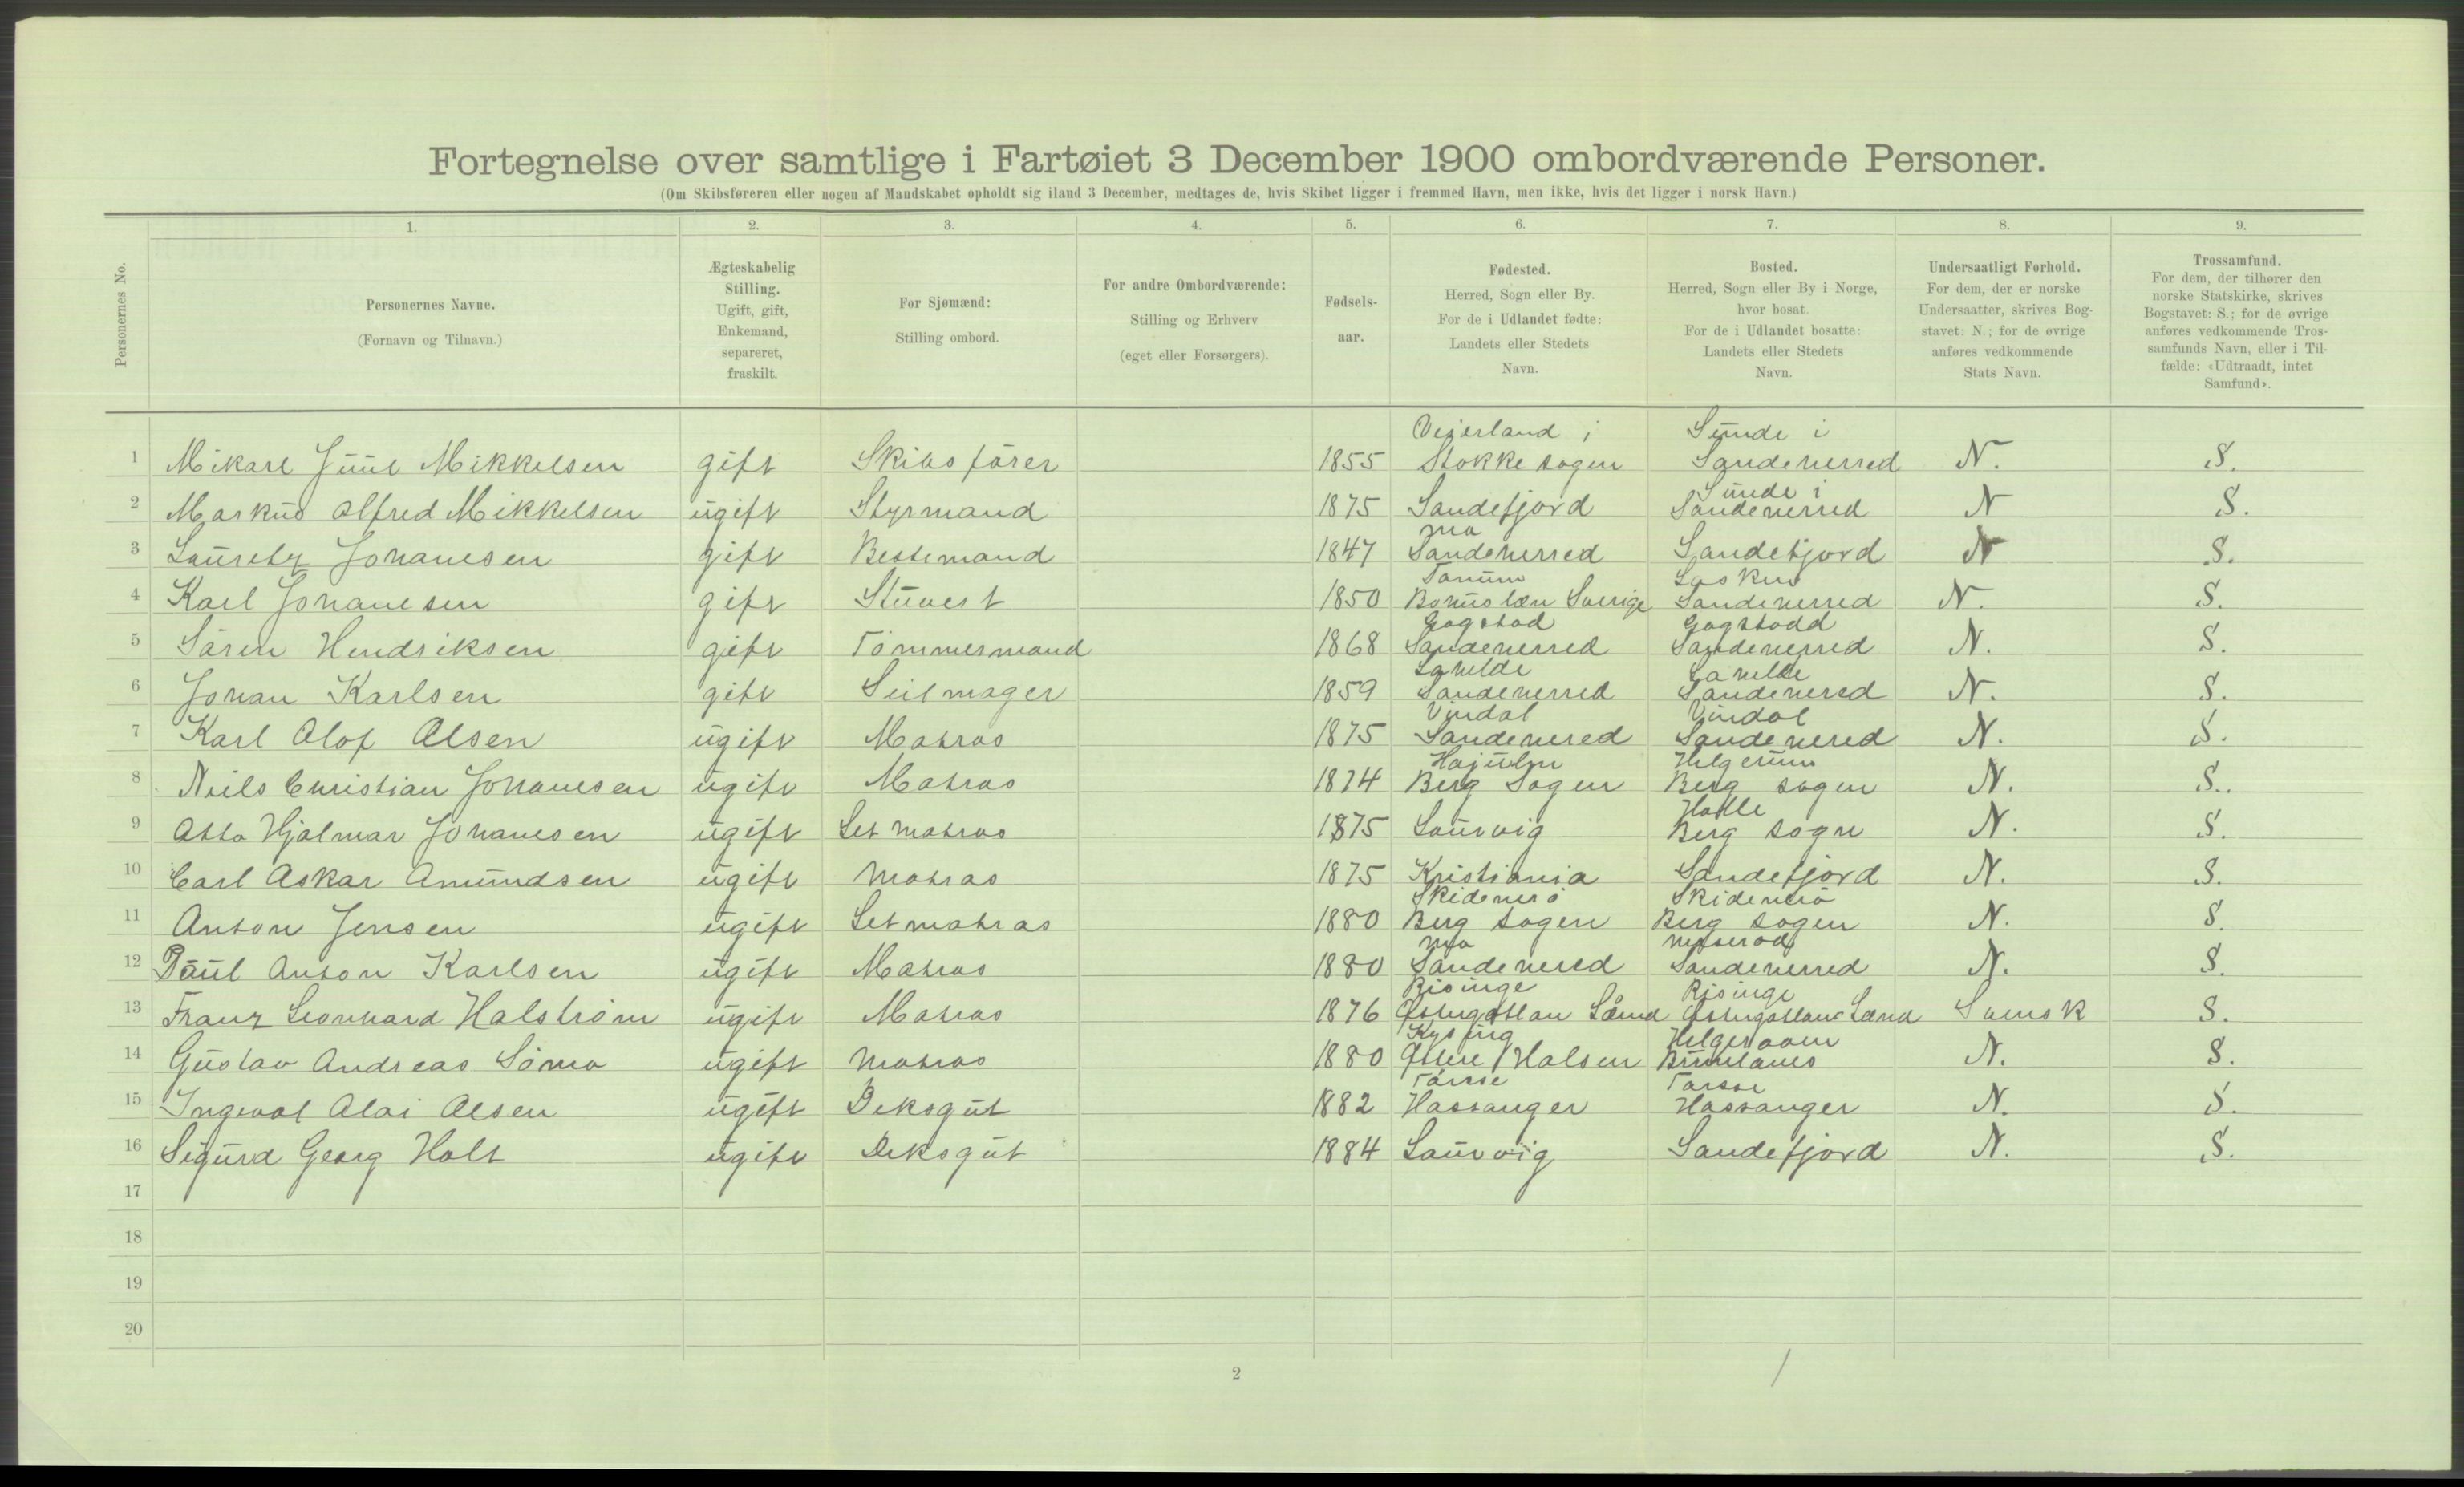 Fortegnelse over samtlige i Fartøiet 3 December 1900 ombordværende Personer.
(Om Skibsføreren eller nogen af Mandskabet opholdt sig iland 3 December, medtages de, hvis Skibet ligger i fremmed Havn, men ikke, hvis det ligger i norsk Havn.)
1. 2. 3. 4. 5. 6. 7. 8. 9.
Personernes No.
Personernes Navne.
(Fornavn og Tilnavn.)
Ægteskabelig
Stilling.
Ugift, gift,
Enkemand,
separeret,
fraskilt.
For Sjømænd:
Stilling ombord.
For andre Ombordværende:
Stilling og Erhverv
(eget eller Forsørgers).
Fødsels-
aar.
Fødested.
Herred, Sogn eller By.
For de i Udlandet fødte:
Landets eller Stedets
Navn.
Bosted.
Herred, Sogn eller By i Norge,
hvor bosat.
For de i Udlandet bosatte:
Landets eller Stedets
Navn.
Undersaatligt Forhold.
For dem, der er norske
Undersaatter, skrives Bog-
stavet: N.; for de øvrige
anføres vedkommende
Stats Navn.
Trossamfund.
For dem, der tilhører den
norske Statskirke, skrives
Bogstavet: S.; for de øvrige
anføres vedkommende Tros-
samfunds Navn, eller i Til-
fælde: «Udtraadt, intet
Samfund».
Vejerland i Sunde i
1 Mikael Juul Mikkelsen gift Skibsförer 1855 Stokke sogen Sandeherred N. S.
Sunde i
2 Markus Alfred Mikkelsen ugift Styrmand 1875 Sandefjord Sandeherred N S.
mo
3 Lauretz Johanesen gift Bestemand 1847 Sandeherred Sandefjord N S.
Tanum
4 Karl Johanesen gift Stuvert 1850 Bohuslæn Sverige Sandeherred N. S.
Gogstad Gogstadd
5 Sören Hendriksen gift Tömmermand 1868 Sandeherred Sandeherred N. S.
6 Johan Karlsen gift Seilmager 1859 Sandeherred Sandehered N. S.
Vindal Vindal
7 Karl Olof Olsen ugift Matros 1875 Sandehered Sandehered N. S.
Helgerum
8 Niels Christian Johanesen ugift Matros 1874 Berg Sogen Berg sogen N. S.
9 Otto Hjalmar Johanesen ugift Letmatros 1875 Laurvig Berg sogn N. S.
10 Carl Oskar Amundsen ugift Matros 1875 Kristiania Sandefjord N. S.
11 Anton Jensen ugift Letmatros 1880 Berg sogen Berg sogen N. S.
mo
12 Paul Anton Karlsen ugift Matros 1880 Sandehered Sandeherred N. S.
Risinge Risinge
13 Franz Leonhard Halström ugift Matros 1876 Svensk S.
14 Gustav Andreas Sömo ugift Matros 1880 Østre Halsen Brunlanes N. S.
15 Ingeval Olai Olsen ugift Deksgut 1882 Hassanger Hassanger N. S.
16 Sigurd Georg Holt ugift Deksgut 1884 Laurvig Sandefjord N. S.
17
18
19
20
2